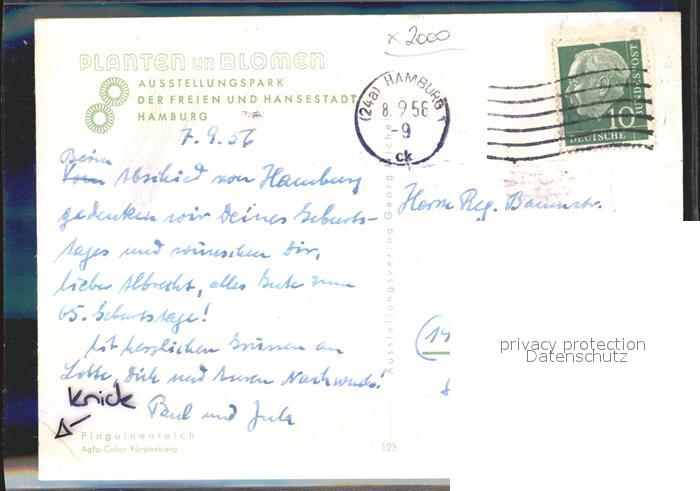 x 2000
PLANTEN un BLOMEN
AUSSTELLUNGSPARK
DER FREIEN UND HANSESTADT
HAMBURG
(24a) HAMBURG 1
8.9.56
-9
ck
DEUTSCHE BUNDESPOST
10
7.9.56
Beim
Vom Abschied von Hamburg
gedenken wir Deines Geburts-
tages und wünschen Dir,
lieber Albrecht, alles Gute zum
65. Geburtstage!
Mit herzlichen Grüssen an
Lotte, Dich und Euren Nachwuchs!
Paul und
Knick
Pinguinenteich
Agfa-Color Fürstenberg
123
Ausstellungsverlag Georg
Herrn Reg. Baumstr.
(14
privacy protection
Datenschutz